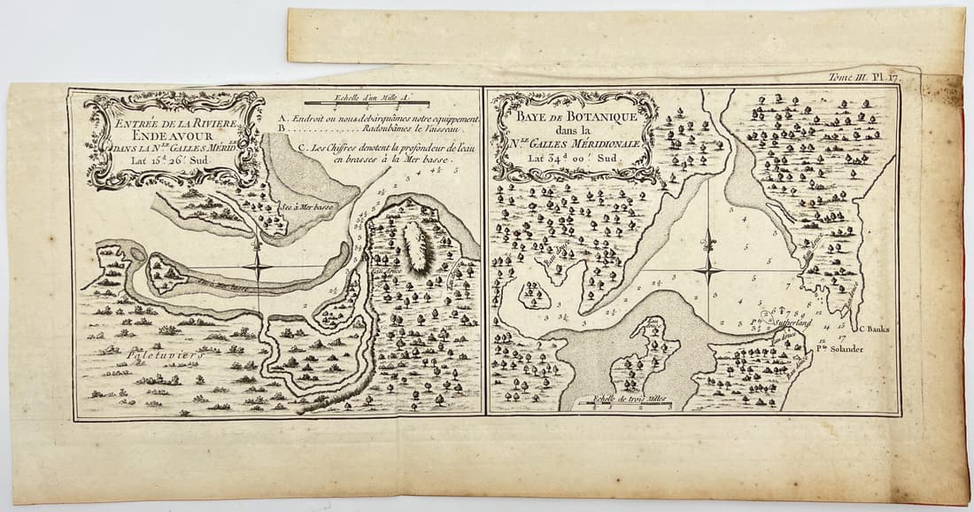 Tome III. Pl. 17.
ENTRÉE DE LA RIVIERE
ENDEAVOUR
DANS LA N.LE GALLES MÉRID.
Lat 15.d 26.' Sud.
Echelle d'un Mille
A. Endroit ou nous debarquâmes notre equippement.
B . . . . . . . . . . . . Radoubâmes le Vaisseau.
C. Les Chifres denotent la profondeur de l'eau
en brasses à la Mer basse.
Sec à Mer basse
Paletuviers
BAYE DE BOTANIQUE
dans la
N.LE GALLES MÉRIDIONALE
Lat 34.d 00.' Sud.
P.te Sutherland
C Banks
P.te Solander
Echelle de trois Milles